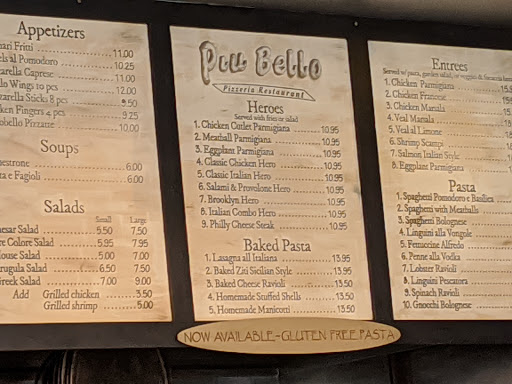 Appetizers
Fritti 11.00
al Pomodoro 10.25
Caprese 11.00
Wings 10 pcs 12.00
Sticks 8 pcs 9.50
Fingers 4 pcs 9.25
Pizzatte 10.00
Soups
6.00
e Fagioli 6.00
Salads
Small Large
Salad 5.50 7.50
Colore Salad 5.95 7.95
Salad 5.00 7.00
Salad 6.50 7.50
Salad 7.00 9.00
Add Grilled chicken 3.50
Grilled shrimp 5.00
Piu Bello
Pizzeria Restaurant
Heroes
Served with fries or salad
1. Chicken Cutlet Parmigiana 10.95
2. Meatball Parmigiana 10.95
3. Eggplant Parmigiana 10.95
4. Classic Chicken Hero 10.95
5. Classic Italian Hero 10.95
6. Salami & Provolone Hero 10.95
7. Brooklyn Hero 10.95
8. Italian Combo Hero 10.95
9. Philly Cheese Steak 10.95
Baked Pasta
1. Lasagna all Italiana 13.95
2. Baked Ziti Sicilian Style 13.95
3. Baked Cheese Ravioli 13.50
4. Homemade Stuffed Shells 13.50
5. Homemade Manicotti 13.50
NOW AVAILABLE-GLUTEN FREE PASTA
Entrees
Served w/ pasta, garden salad, or veggies &
1. Chicken Parmigiana
2. Chicken Francese
3. Chicken Marsala
4. Veal Marsala
5. Veal al Limone
6. Shrimp Scampi
7. Salmon Italian Style
8. Eggplant Parmigiana
Pasta
1. Spaghetti Pomodoro e Basilico
2. Spaghetti with Meatballs
3. Spaghetti Bolognese
4. Linguini alla Vongole
5. Fettuccine Alfredo
6. Penne alla Vodka
7. Lobster Ravioli
8. Linguini Pescatora
9. Spinach Ravioli
10. Gnocchi Bolognese